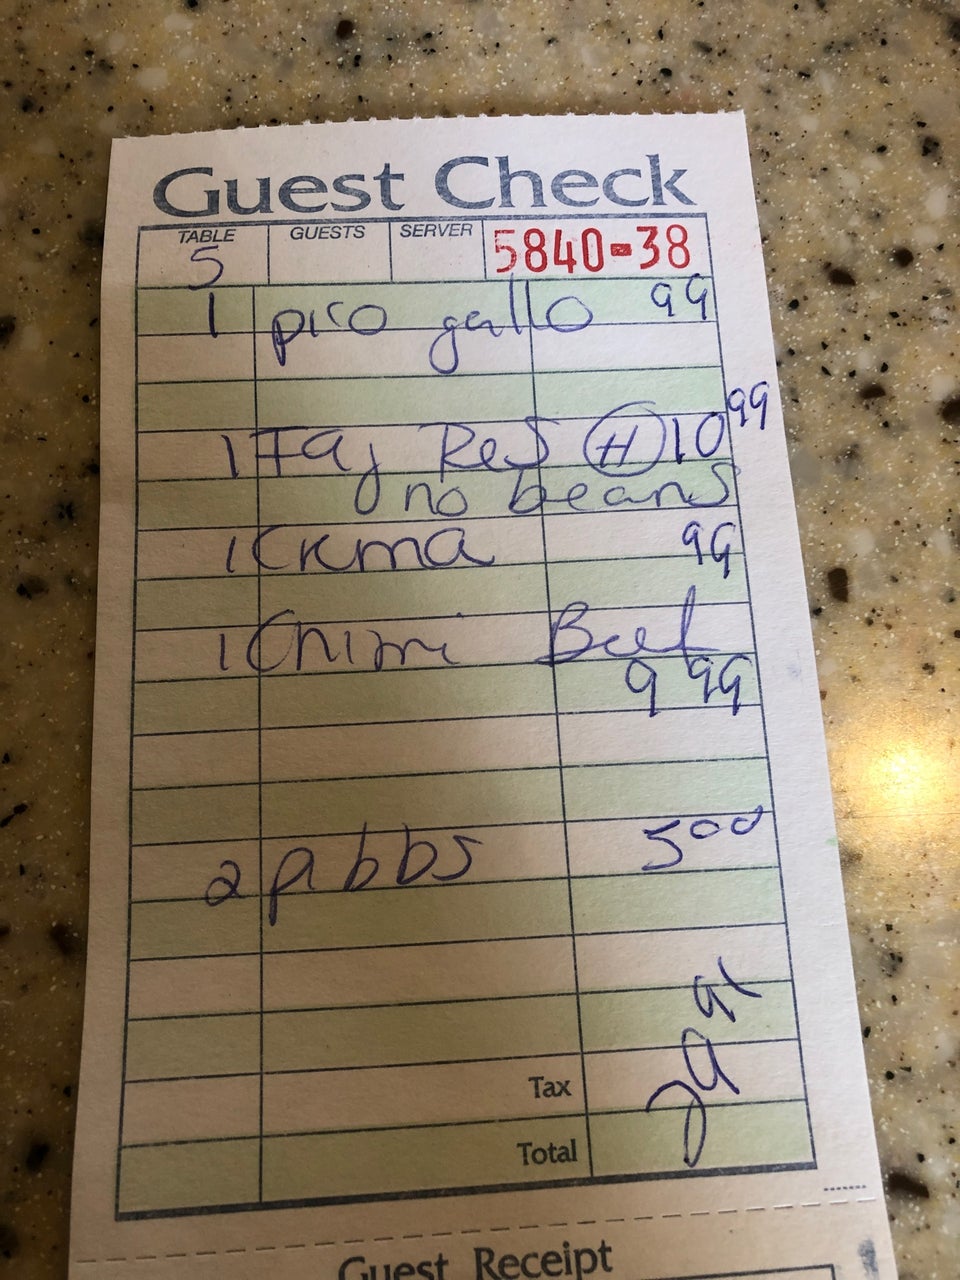 Guest Check
TABLE GUESTS SERVER 5840-38
5
1 pico gallo 99
1 Faj Res H 10 99
no beans
1 Crema 99
1 Chimi Beef
9 99
2 p bbs 5 00
Tax
Total
Guest Receipt